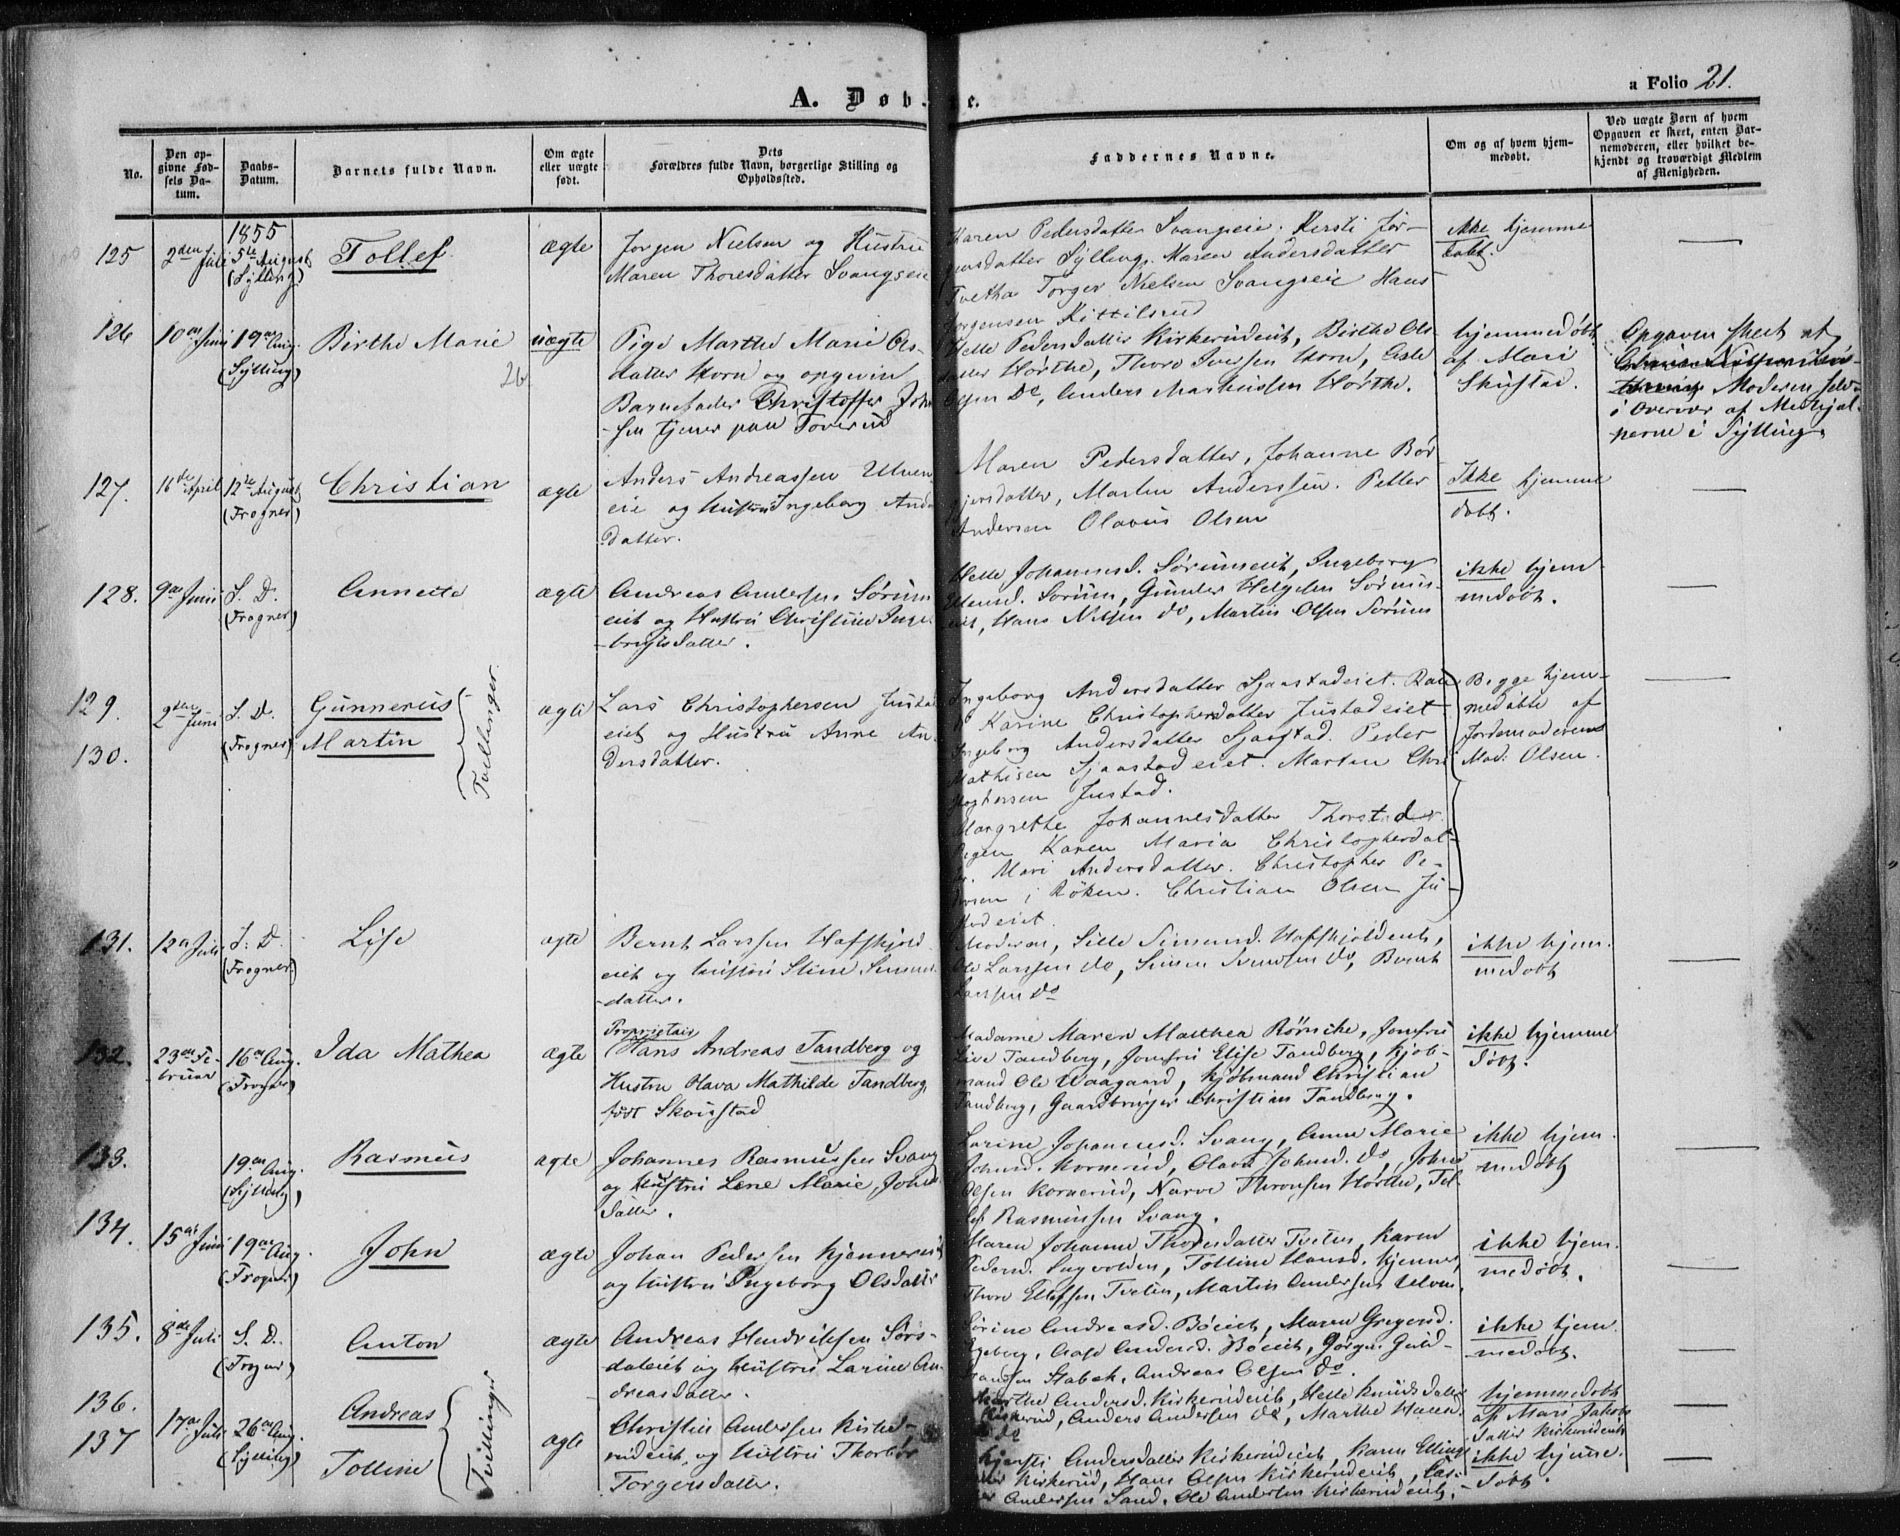 A. Døb- e.
a Folio 21.
No.
Den opgivne Fødsels Datum.
Daabs-Datum.
Barnets fulde Navn.
Om ægte eller uægte født.
Dets Forældres fulde Navn, borgerlige Stilling og Opholdssted.
Faddernes Navne.
Om og af hvem hjemmedøbt.
Ved uægte Børn af hvem Opgaven er skeet, enten Barnemoderen, eller hvilket bekjendt og troværdigt Medlem af Menigheden.
1855
125 2den Juli 5te August (Sylling) Tollef. ægte
Jørgen Nielsen og Hustru
Maren Thoresdatter Svangseie
Karen Pedersdatter Svangseie. Kersti Jør-
gensdatter Sylling. Maren Andersdatter
Tvetha Torger Nielsen Svangseie Hans
Jørgensen Kittilsrud
ikke hjemme
døbt.
126 10de Juni 19de Aug. (Sylling) Birthe Marie uægte
26.
Pige Marthe Marie Ols-
datter Horn og opgiven
Barnefader Christoffer John-
sen tjener paa Toverud
Helle Pedersdatter Kirkerudeiet, Birthe Ols-
datter Hørthe, Thore Iversen Horn,
Olsen Do, Anders Markussen Hørthe.
hjemmedøbt
af Mari
Skustad.
Opgaven skeet af
Moderen selv
i Overvær af Medhjæl-
perne i Sylling.
127. 16de April 12te August (Frogner) Christian ægte
Anders Andreassen Ulven
eie og Hustru Ingeborg Anders
datter.
Maren Pedersdatter, Johanne Bør
gersdatter, Marten Anderssen. Petter
Andersen Olavus Olsen
Ikke hjemme
døbt.
128. 9de Juni S. D. (Frogner) Annette ægte
Andreas Andersen Sørum
eiet og Hustru Christine Inge
-brigtsdatter.
Helle Johannesd. Sørumeiet, Ingeborg
Ellensd. Sørum, Gunder Helgesen Sørum-
eiet, Hans Nilsen do, Martin Olsen Sørum
ikke hjem-
medøbt.
129. 2den Juni S. D. (Frogner) Gunnerius ægte
130. Martin
Tvillinger
Lars Christophersen Justad
eiet og Hustru Anne An-
dersdatter.
Ingeborg Andersdatter Sjaastadeiet.
Karine Christophersdatter Justadeiet
Ingeborg Andersdatter Sjaastad. Peder
Mathisen Sjaastadeiet. Marten Chri
stophersen Justad.
Margrethe Johannesdatter Thorstad
Pigen Karen Maria Christopherdat-
ter Mari Andersdatter. Christopher Pe-
dersen i Røken. Christian Olsen Ju-
stadeiet.
Begge hjem-
medøbte af
Jordemoderen
Mad: Olsen.
131. 12te Juli S. D. (Frogner) Lise ægte
Bernt Larssen Hafskjold
eiet og Hustru Stine Simens
-datter.
Moderen, Sille Simensd. Hafskjoldeiet,
Ole Larssen do, Simen Svendsen do, Bernt
Larssen do
ikke hjem.
medøbt
132. 23de Fe-
bruar 16de Aug. (Frogner) Ida Mathea ægte
Proprietair
Hans Andreas Tandberg og
Hustru Hava Mathilde Tandberg,
født Skougstad
Madame Maren Mathea Rønche, Jomfru
Live Tandberg, Jomfru Elise Tandberg, Kjøb-
mand Ole Waagaard, Kjøbmand Christian
Tandberg, Gaardbruger Christian Tandberg.
ikke hjemme
døbt.
133. 19de Aug. (Sylling) Rasmus ægte
Johannes Rasmussen Svang
og Hustru Lene Marie Johns
datter.
Larine Johannesd. Svang, Anne Marie
Johnsd. Kornerud, Olava Johnsd. do, Johns
Olsen Kornerud, Narve Thronsen Hørthe, Tol-
lef Rasmussen Svang.
ikke hjem.
medøbt
134. 15de Juni 19de Aug. (Frogner) John ægte
Johan Pedersen Kjønnerud
og Hustru Ingeborg Olsdatter
Maren Johanne Thoresdatter Tveten, Karen
Pedersd. Engvolden, Tolline Hansd. Kjenner,
Thore Ellefsen Tveten, Martin Andersen Ulven.
ikke hjem.
medøbt.
135. 8de Juli S. D. (Frogner) Anton ægte
Andreas Hendriksen Sørs-
daleiet og Hustru Larine An-
dreasdatter.
Sørine Andreasd. Bøeiet, Maren Gregersd.
Egeberg, Aase Andersd. Bøeiet, Jørgen Guld-
brandsen Stabek, Andreas Olsen do.
ikke hjem
medøbt.
136. 17de Juli 26de Aug. (Sylling) Andreas ægte
137 Tolline
Tvillinger
Christen Andersen Kirke-
rudeiet og Hustru Thorbør
Torgersdatter.
Marthe Andersd. Kirkerudeiet, Helle Knudsdatter
Kirkerud, Anders Andersen do, Marthe Hansd.
do
Kjersti Andersdatter Kirkerudeiet, Karen Ellings
datter Kirkerud, Hans Olsen Kirkerudeiet,
Andersen Sand, Ole Andersen Kirkerudeiet.
hjemmedøbt
af Mari Jakobs
datter Kirkerudeiet
ikke hjemme.
døbt